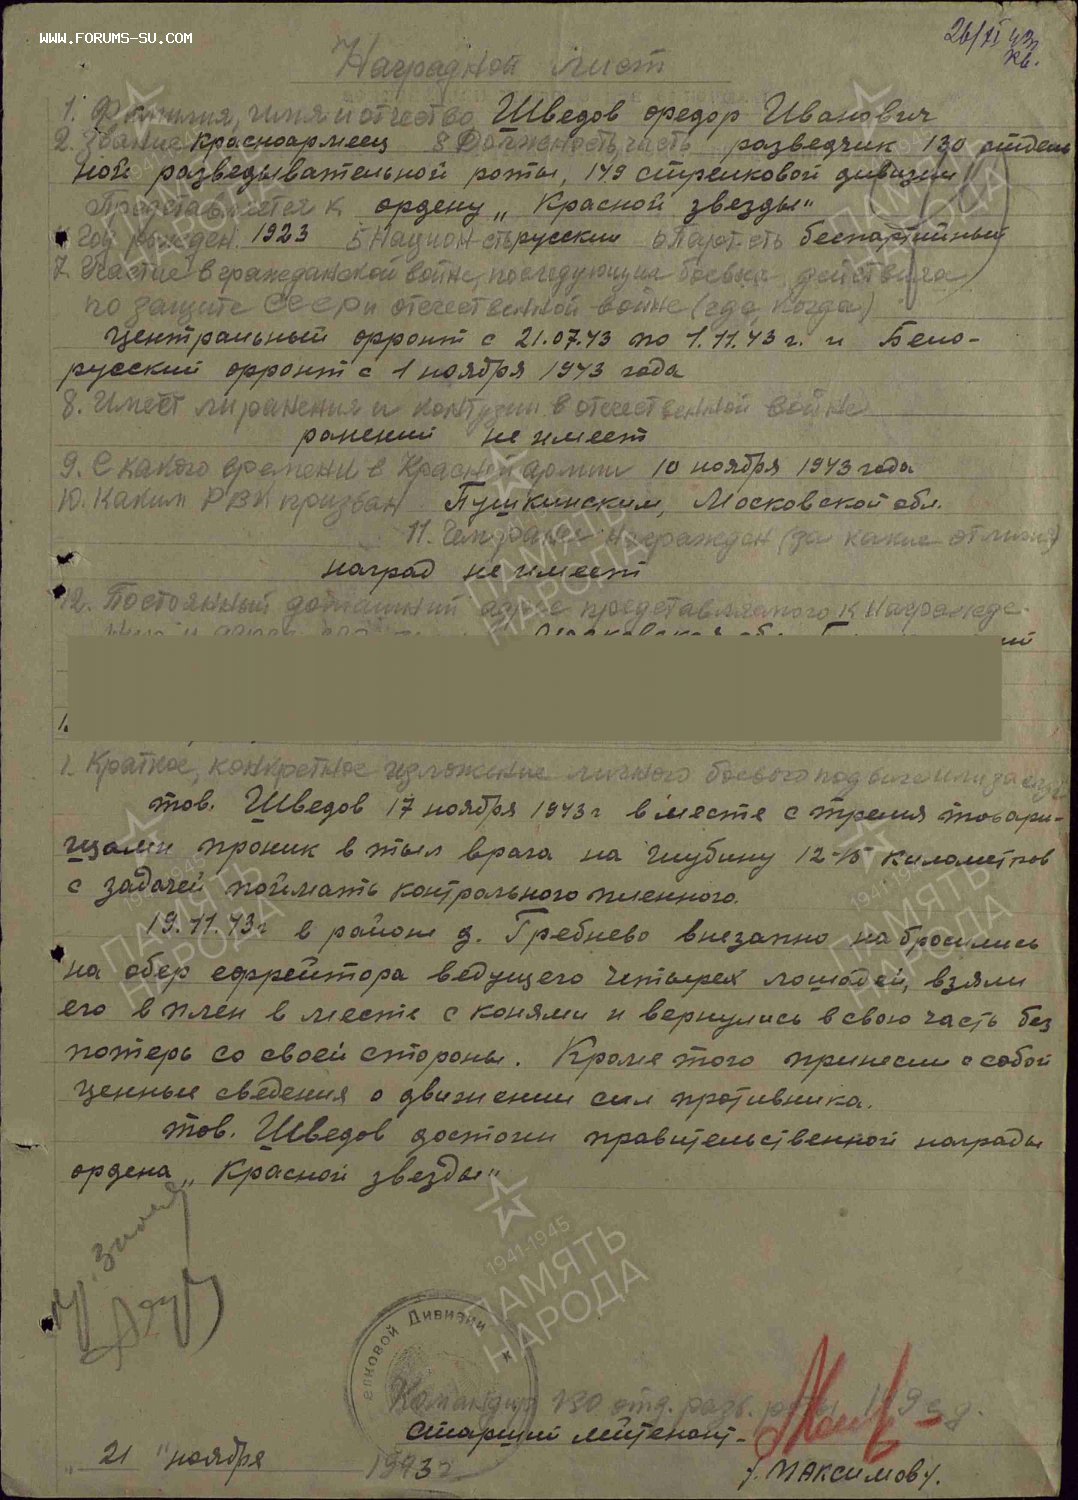 WWW.FORUMS-SU.COM
26/XI 43г
Наградной лист
1. Фамилия, имя и отчество Шведов Федор Иванович
2. Звание Красноармеец 3 Должность, часть разведчик 130 отдель
ной разведывательной роты, 149 стрелковой дивизии
Представляется к ордену „Красной звезды"
Год рожден. 1923 5 Национ-сть русский 6 Парт-сть беспартийный
7. Участие в гражданской войне, последующих боевых действиях
по защите СССР и отечественной войне (где, когда)
Центральный фронт с 21.07.43 по 1.11.43 г. и Бело-
русский фронт с 1 ноября 1943 года
8. Имеет ли ранения и контузии в отечественной войне
ранений не имеет
9. С какого времени в Красной армии 10 ноября 1943 года
10. Каким РВК призван Пушкинским, Московской обл.
11. Чем ранее награжден (за какие отличия)
наград не имеет
12. Постоянный домашний адрес представляемого к награжде-
1. Краткое, конкретное изложение личного боевого подвига или заслуг
тов. Шведов 17 ноября 1943 г в месте с тремя товари-
щами проник в тыл врага на глубину 12-15 километров
с задачей поймать контрольного пленного.
19.11.43 г в районе д. Гребнево внезапно набросились
на обер ефрейтора ведущего четырех лошадей, взяли
его в плен в месте с конями и вернулись в свою часть без
потерь со своей стороны. Кроме того принесли с собой
ценные сведения о движении сил противника.
тов. Шведов достоин правительственной награды
ордена „Красной звезды"
елковой Дивизии
Командир 130 отд. разв. роты 149 с.д.
Старший лейтенант-
/. МАКСИМОВ/.
„21" ноября 1943 г
1941-1945
ПАМЯТЬ
НАРОДА